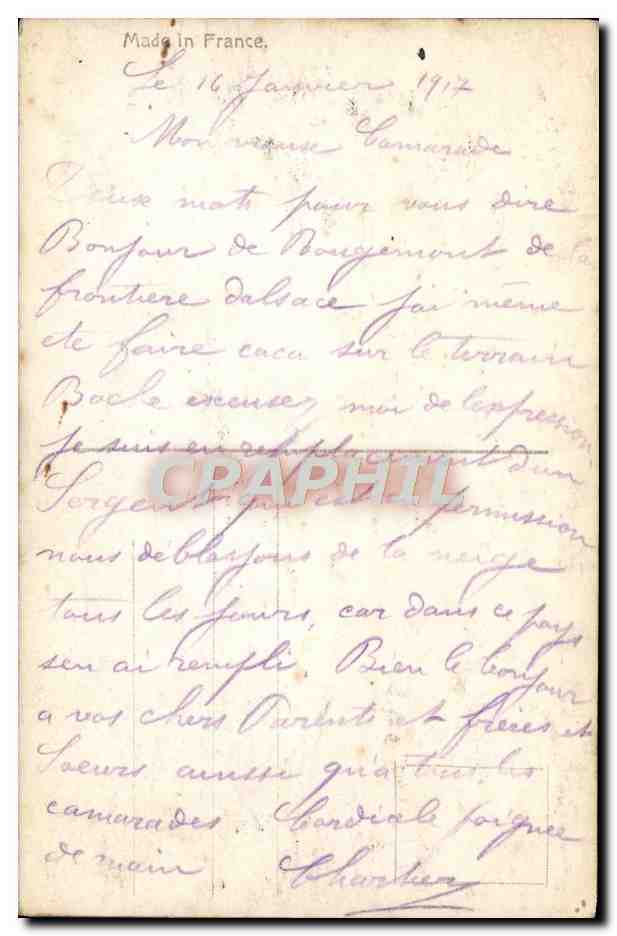 Made in France.
Le 16 Janvier 1917
Mon vieux Camarade
Deux mots pour vous dire
Bonjour de Rougemont de la
frontiere dalsace j'ai même
ete faire caca sur le terrain
Boche excusez moi de lexpression
je suis en remplacement d'un
Sergent qui est en permission
CARAPHIL
nous déblayons de la neige
tous les jours, car dans ce pays
sen ai rempli. Bien le bonjour
a vos chers Parents et frères et
Soeurs aussi qu'a tous les
camarades. Cordiale poignee
de main Chartier